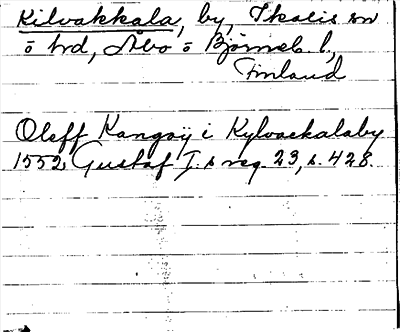 Kilvakkala, by, Ikalis sn
o hrd, Åbo o Björneb. l.,
Finland
Oleff Kangaij i Kylvackalaby
1552, Gustaf I. s reg. 23, s. 428.